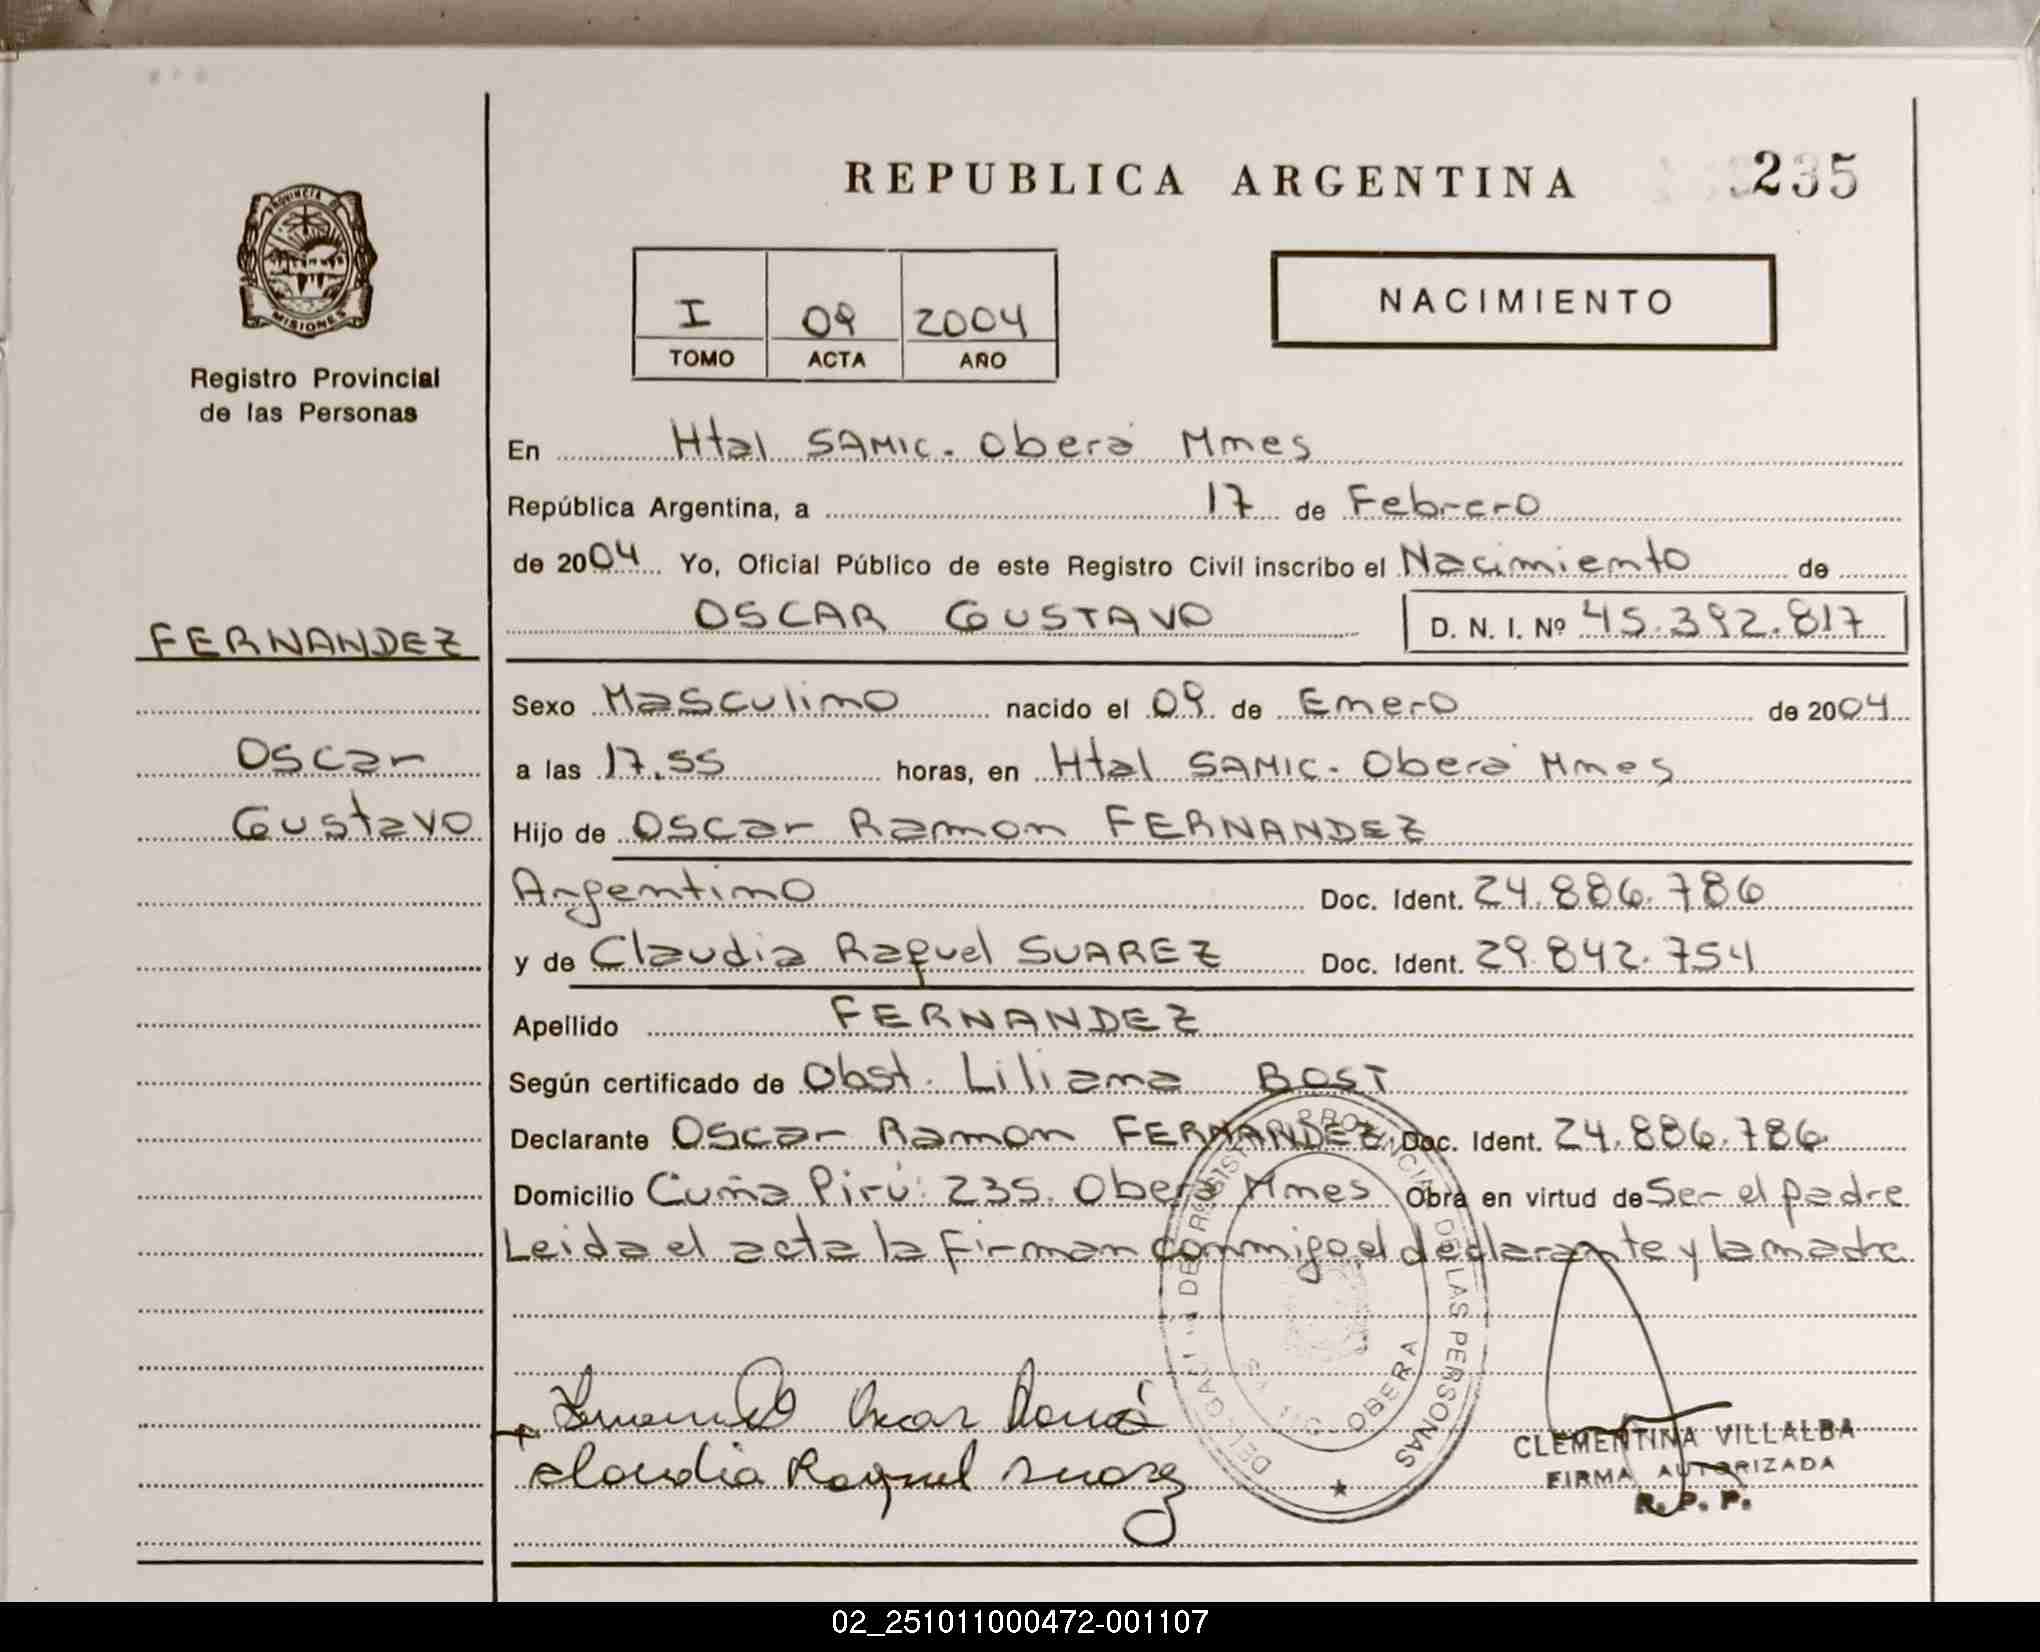 REPUBLICA ARGENTINA
235
PROVINCIA DE
MISIONES
Registro Provincial
de las Personas
I 09 2004
TOMO ACTA AÑO
NACIMIENTO
En Htal SAMIC. Oberá Mnes
República Argentina, a 17 de Febrero
de 2004 Yo, Oficial Público de este Registro Civil inscribo el Nacimiento de
OSCAR GUSTAVO D. N. I. Nº 45.392.817
FERNANDEZ
Oscar
Gustavo
Sexo Masculino nacido el 09 de Enero de 2004
a las 17.55 horas, en Htal SAMIC. Oberá Mnes
Hijo de Oscar Ramon FERNANDEZ
Argentino Doc. Ident. 24.886.786
y de Claudia Raquel SUAREZ Doc. Ident. 29.842.754
Apellido FERNANDEZ
Según certificado de Obst. Liliana BOST
Declarante Oscar Ramon FERNANDEZ Doc. Ident. 24.886.786
Domicilio Cuña Pirú 235. Oberá Mnes Obra en virtud de Ser el padre
Leida el acta la firman conmigo el declarante y la madre
REGISTRO PROVINCIAL DE LAS PERSONAS
OBERA
Fernandez Oscar Ramón
Claudia Raquel Suarez
CLEMENTINA VILLALBA
FIRMA AUTORIZADA
R. P. P.
02_251011000472-001107